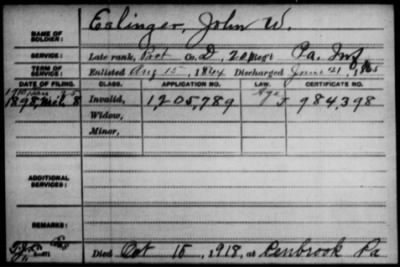 NAME OF SOLDIER: Erlinger, John W.
SERVICE: Late rank, Co. D, Pa. Inf
TERM OF SERVICE: Enlisted Aug 15, 1864 Discharged June 21, 1865
DATE OF FILING. CLASS. APPLICATION NO. LAW. CERTIFICATE NO.
1898, 8 Invalid, 1,205,789 984,398
Widow,
Minor,
ADDITIONAL SERVICES:
REMARKS:
Died Oct 15, 1918, at Penbrook Pa